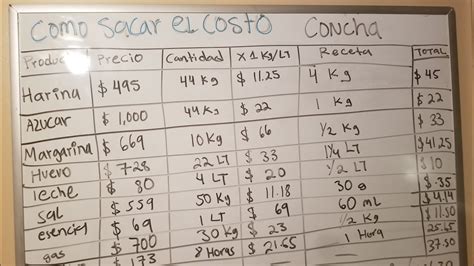 COMO SACAR EL COSTO CONCHA
Producto Precio Cantidad X 1 Kg/LT Receta TOTAL
Harina $ 495 44 Kg $ 11.25 4 Kg $ 45
AZUCAR $ 1,000 44 Kg $ 22 1 Kg $ 22
Margarina $ 669 10 Kg $ 66 1/2 Kg $ 33
Huevo $ 728 22 LT $ 33 1 1/4 LT $ 41.25
leche $ 80 4 LT $ 20 1/2 LT $ 10
sal $ 559 50 Kg $ 11.18 30 g $ .35
esencia $ 69 1 LT $ 69 60 mL $ 4.14
$ 700 30 Kg $ 23 1/2 Kg $ 11.50
gas $ 173 8 Horas $ 21.65 1 Hora 37.50